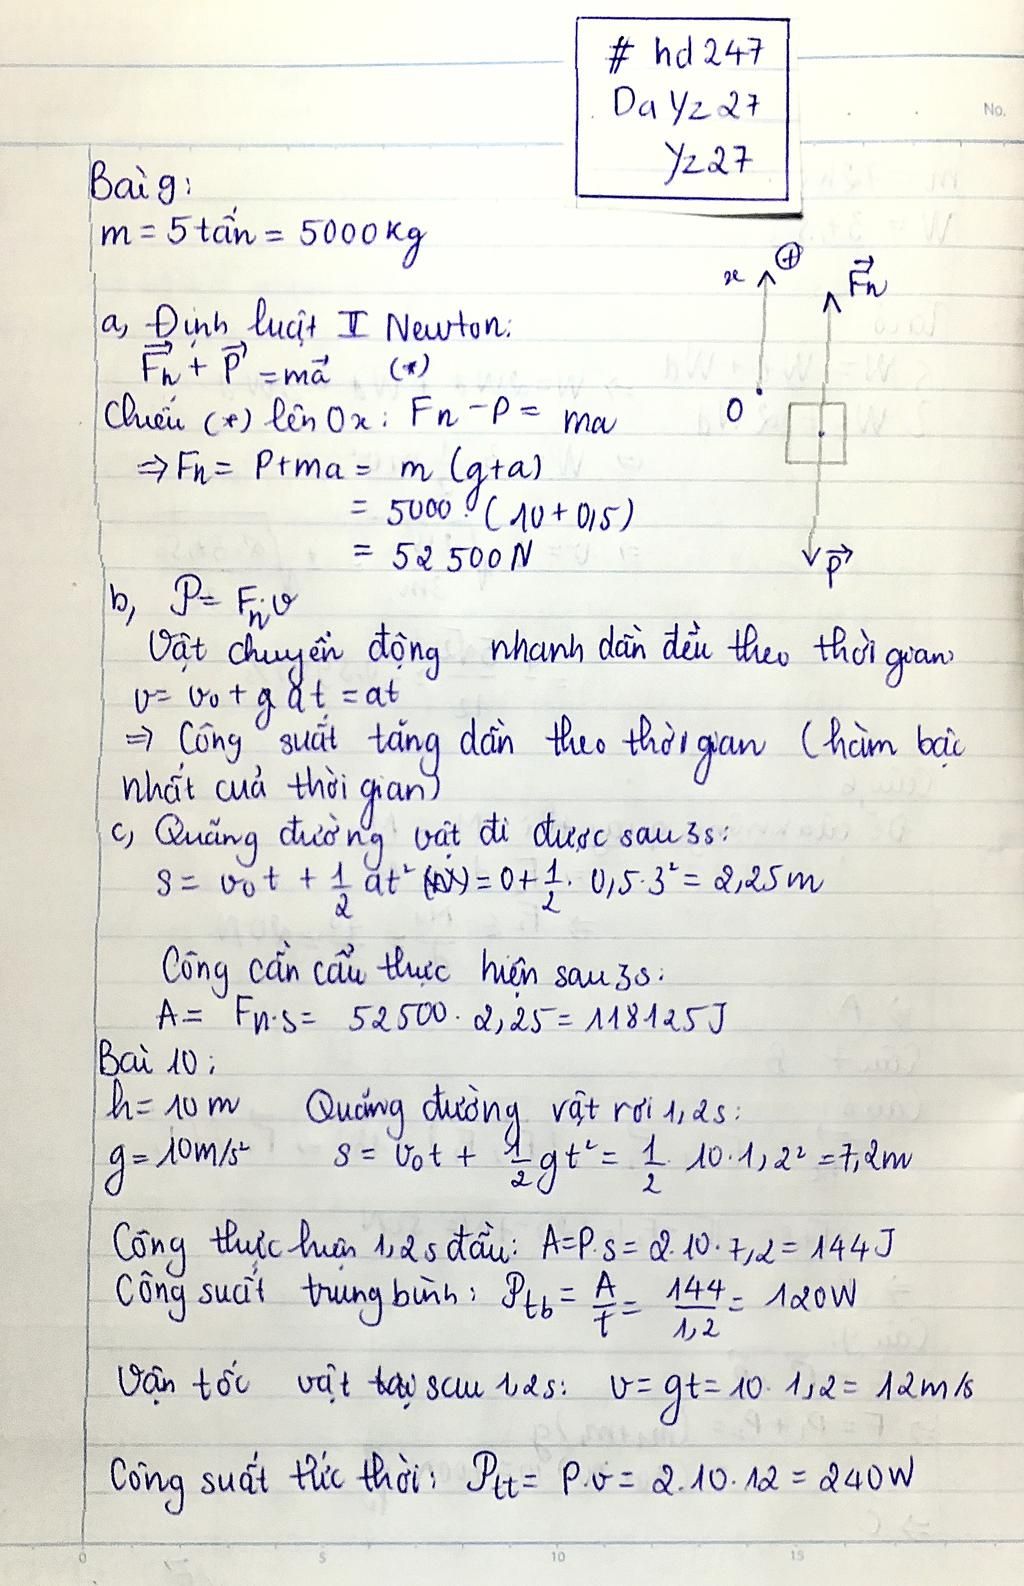 # hd247
DaYz27
Yz27
No.
Bài 9:
m = 5 tấn = 5000kg
x ⊕ F⃗n
O
P⃗
a, Định luật II Newton:
F⃗n + P⃗ = ma⃗ (*)
Chiếu (*) lên Ox: Fn - P = ma
⇒ Fn = P + ma = m (g+a)
= 5000 . (10 + 0,5)
= 52 500N
b, P = Fn.v
Vật chuyển động nhanh dần đều theo thời gian
v = v₀ + g at = at
⇒ Công suất tăng dần theo thời gian (hàm bậc
nhất của thời gian)
c, Quãng đường vật đi được sau 3s:
s = v₀t + 1/2 at² = 0 + 1/2 . 0,5.3² = 2,25m
Công cần cẩu thực hiện sau 3s:
A = Fn.s = 52500. 2,25 = 118125J
Bài 10:
h = 10m Quãng đường vật rơi 1,2s:
g = 10m/s² s = v₀t + 1/2 gt² = 1/2 . 10.1,2² = 7,2m
Công thực hiện 1,2s đầu: A = P.s = 2.10.7,2 = 144J
Công suất trung bình: Ptb = A/t = 144/1,2 = 120W
Vận tốc vật sau 1,2s: v = gt = 10. 1,2 = 12m/s
Công suất tức thời: Ptt = P.v = 2.10.12 = 240W
0 5 10 15